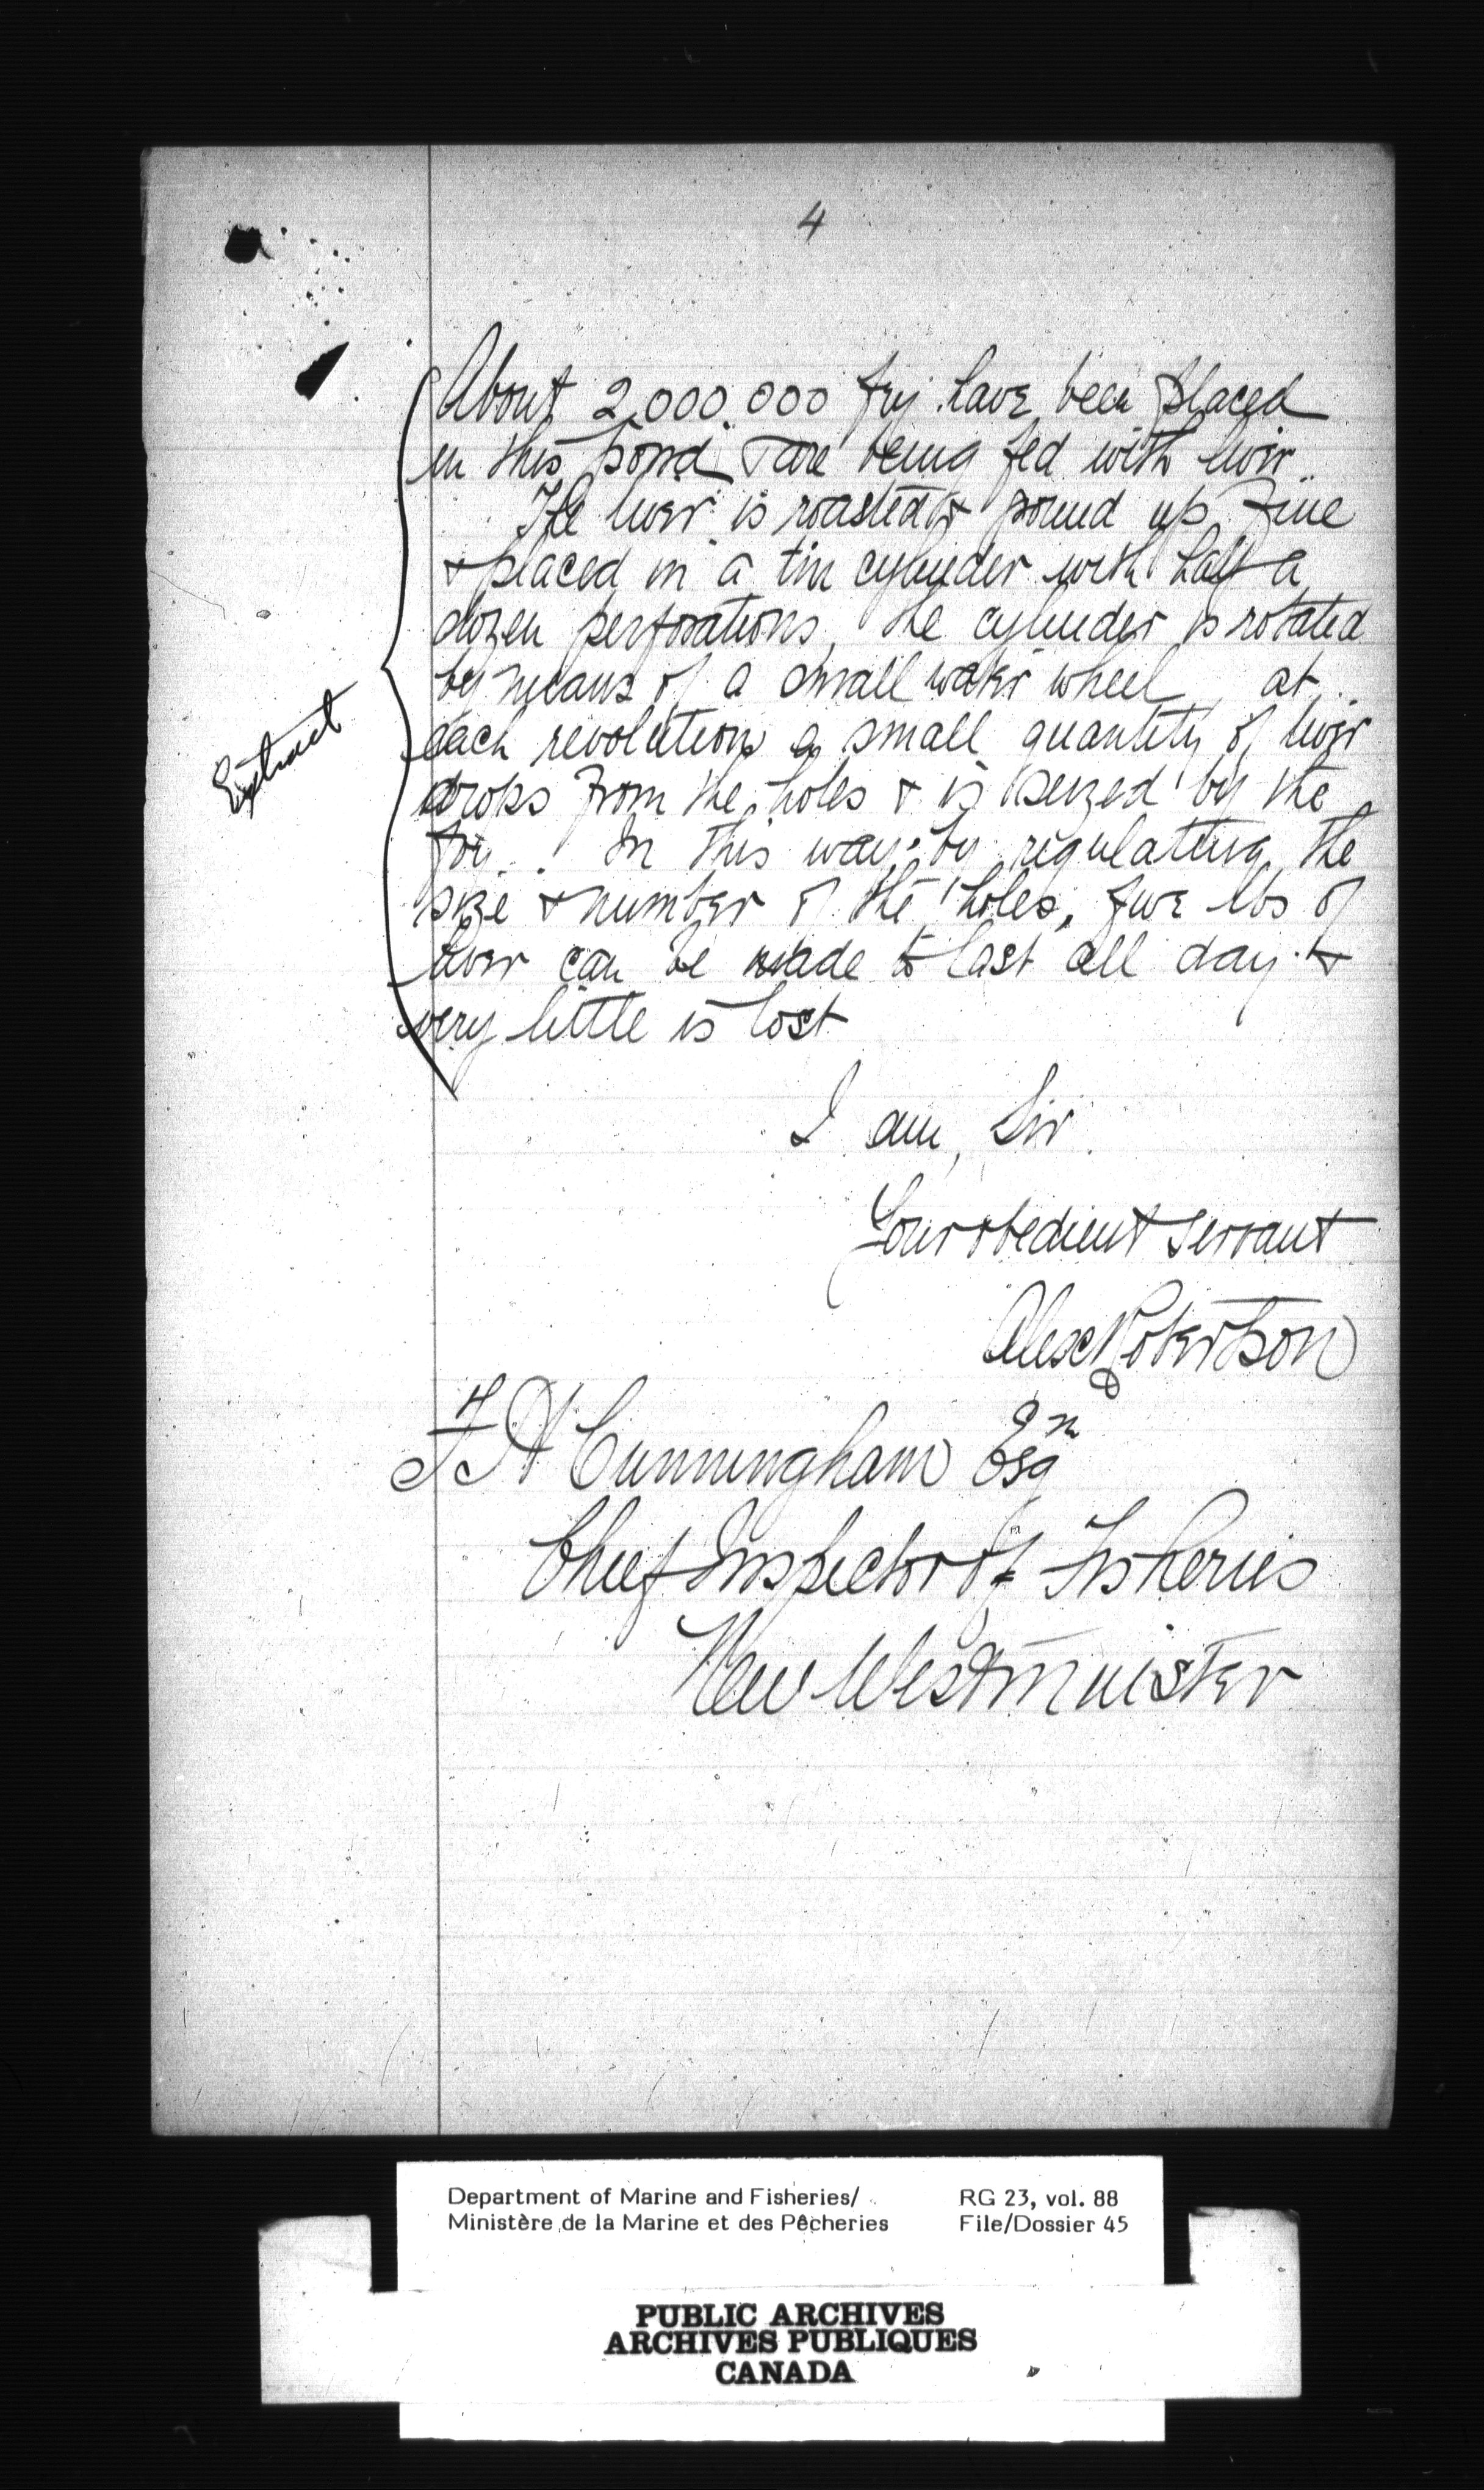 4
About 2,000,000 fry have been placed
in this pond & are being fed with liver.
The liver is roasted & pound up fine
& placed in a tin cylinder with half a
dozen perforations, the cylinder is rotated
by means of a small water wheel, at
each revolution a small quantity of liver
drops from the holes & is seized by the
fry. In this way by regulating the
size & number of the holes, five lbs of
liver can be made to last all day &
very little is lost
Extract
I am, Sir
Your obedient servant
Alex Robertson
F H Cunningham Esq
Chief Inspector of Fisheries
New Westminister
Department of Marine and Fisheries/
Ministère de la Marine et des Pêcheries
RG 23, vol. 88
File/Dossier 45
PUBLIC ARCHIVES
ARCHIVES PUBLIQUES
CANADA